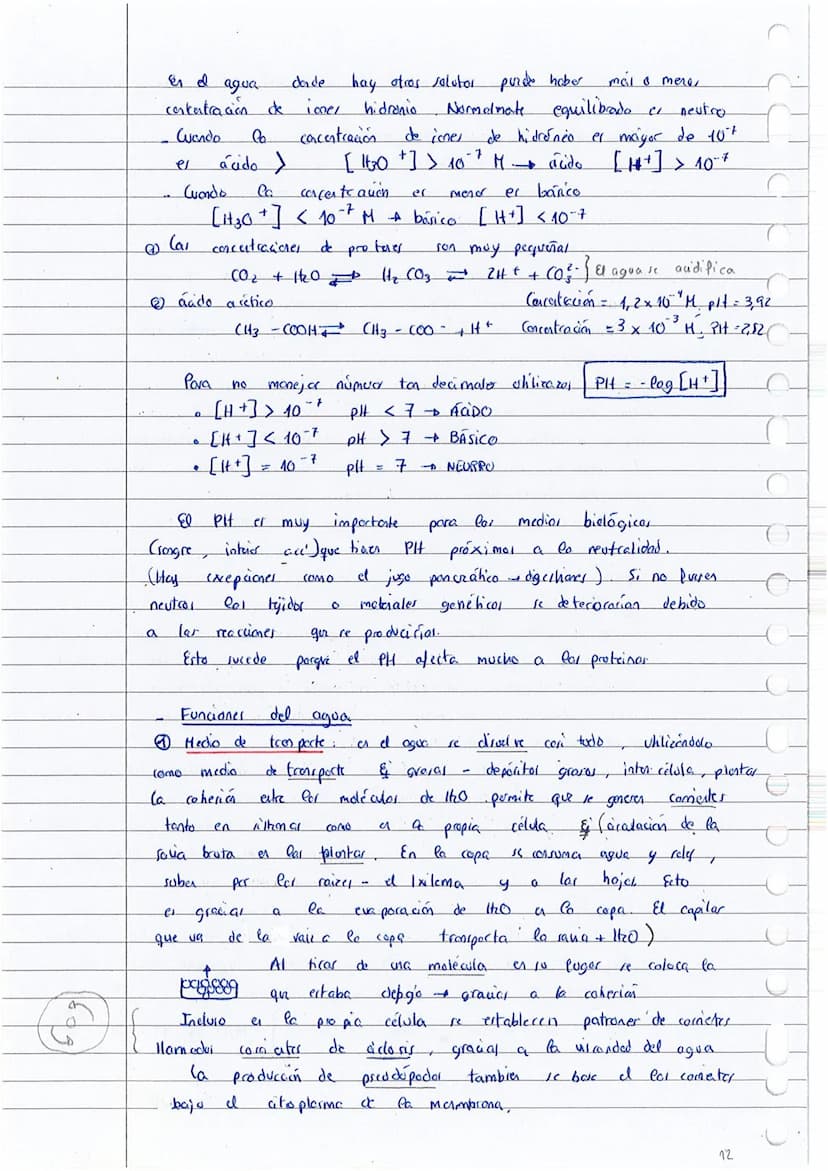 En el agua donde hay otros solutos puede haber más o menos
concentración de iones hidronio. Normalmente equilibrado es neutro
- Cuando la concentración de iones de hidróneo es mayor de 10⁻⁷
es ácido > [H2O +] > 10⁻⁷ M → ácido [H+] > 10⁻⁷
- Cuando la concentración es menor es básico
[H3O +] < 10⁻⁷ M → básico [H+] < 10⁻⁷
① Las concentraciones de protones son muy pequeñas
CO2 + H2O ⇌ H2CO3 ⇌ 2H+ + CO3²⁻ } El agua se acidifica
② ácido acético Concentración = 1,2 x 10⁻⁴ M, pH = 3,92
CH3 - COOH ⇌ CH3 - COO - + H+ Concentración = 3 x 10⁻³ M, PH = 2,52
Para no manejar números tan decimales utilizazos PH = - log [H+]
• [H+] > 10⁻⁷ pH < 7 → ÁCIDO
• [H+] < 10⁻⁷ pH > 7 → BÁSICO
• [H+] = 10⁻⁷ pH = 7 → NEURRO
El PH es muy importante para los medios biológicos
(sangre, interior) que tienen PH próximos a la neutralidad.
(Hay excepciones como el jugo pancreático → digestiones). Si no fuesen
neutros los tejidos o materiales genéticos se deteriorarían debido
a las reacciones que se producirían.
Esto sucede porque el PH afecta mucho a las proteínas
- Funciones del agua
① Medio de transporte: en el agua se disuelve casi todo, utilizándolo
como medio de transporte Ej grasas - depósitos grasos, inter. célula, plantas
La cohesión entre las moléculas de H2O permite que se generen corrientes
tanto en como en la propia célula. Ej (circulación de la
savia bruta en las plantas. En la copa se consuma agua y,
suben por las raíces - el Ixilema y a las hojas. Esto
es gracias a la evaporación de H2O en la copa. El capilar
que va de la raíz a la copa transporta la savia + H2O)
Al tirar de una molécula en su lugar se coloca la
que estaba debajo → gracias a la cohesión
Incluso en la propia célula se establecen patrones de corrientes
llamados corrientes de ciclosis, gracias a la viscosidad del agua
La producción de pseudópodos también se base el las corrientes
bajo el citoplasma de la membrana.
12